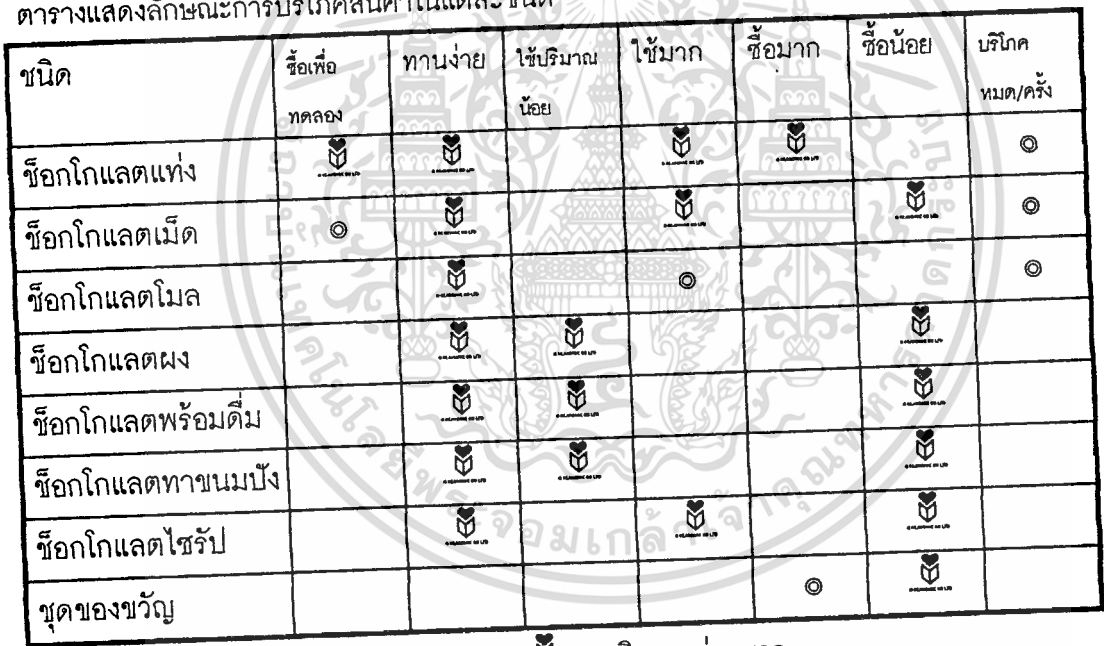 ตารางแสดงลักษณะการบริโภคสินค้าในแต่ละชนิด
ชนิด ซื้อเพื่อ ทานง่าย ใช้ปริมาณ ใช้มาก ซื้อมาก ซื้อน้อย บริโภค
ทดลอง น้อย หมด/ครั้ง
ช็อกโกแลตแท่ง ◎
ช็อกโกแลตเม็ด ◎ ◎
ช็อกโกแลตโมล ◎ ◎
ช็อกโกแลตผง
ช็อกโกแลตพร้อมดื่ม
ช็อกโกแลตทาขนมปัง
ช็อกโกแลตไซรัป
ชุดของขวัญ ◎